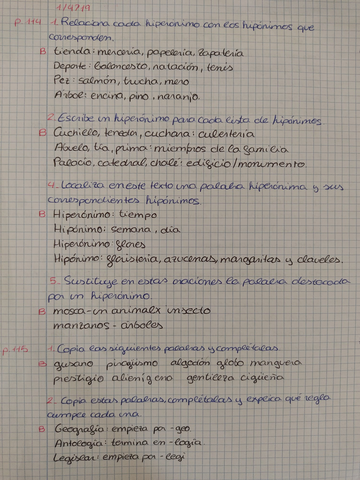 1/4/19
p. 114 1. Relaciona cada hiperónimo con los hipónimos que
corresponden.
B tienda: mercería, papelería, zapatería
Deporte: baloncesto, natación, tenis
Pez: salmón, trucha, mero
Árbol: encina, pino, naranjo.
2. Escribe un hiperónimo para cada lista de hipónimos
B Cuchillo, tenedor, cuchara: cubertería
Abuelo, tía, prima: miembros de la familia
Palacio, catedral, chalé: edificio/monumento.
4. Localiza en este texto una palabra hiperónima y sus
correspondientes hipónimos.
B Hiperónimo: tiempo
Hipónimo: semana, día
Hiperónimo flores
Hipónimo: floristería, azucenas, margaritas y claveles.
5. Sustituye en estas oraciones la palabra destacada
por un hiperónimo.
B mosca - un animalx insecto
manzanos - árboles
p. 115 1. Copia las siguientes palabras y complétalas.
B gusano piragüismo algodón globo manguera
prestigio alienígena gentileza cigüeña
2. Copia estas palabras, complétalas y explica qué regla
cumple cada una.
B Geografía empieza por - geo
Antología: termina en - logía.
Legislar: empieza por - legi